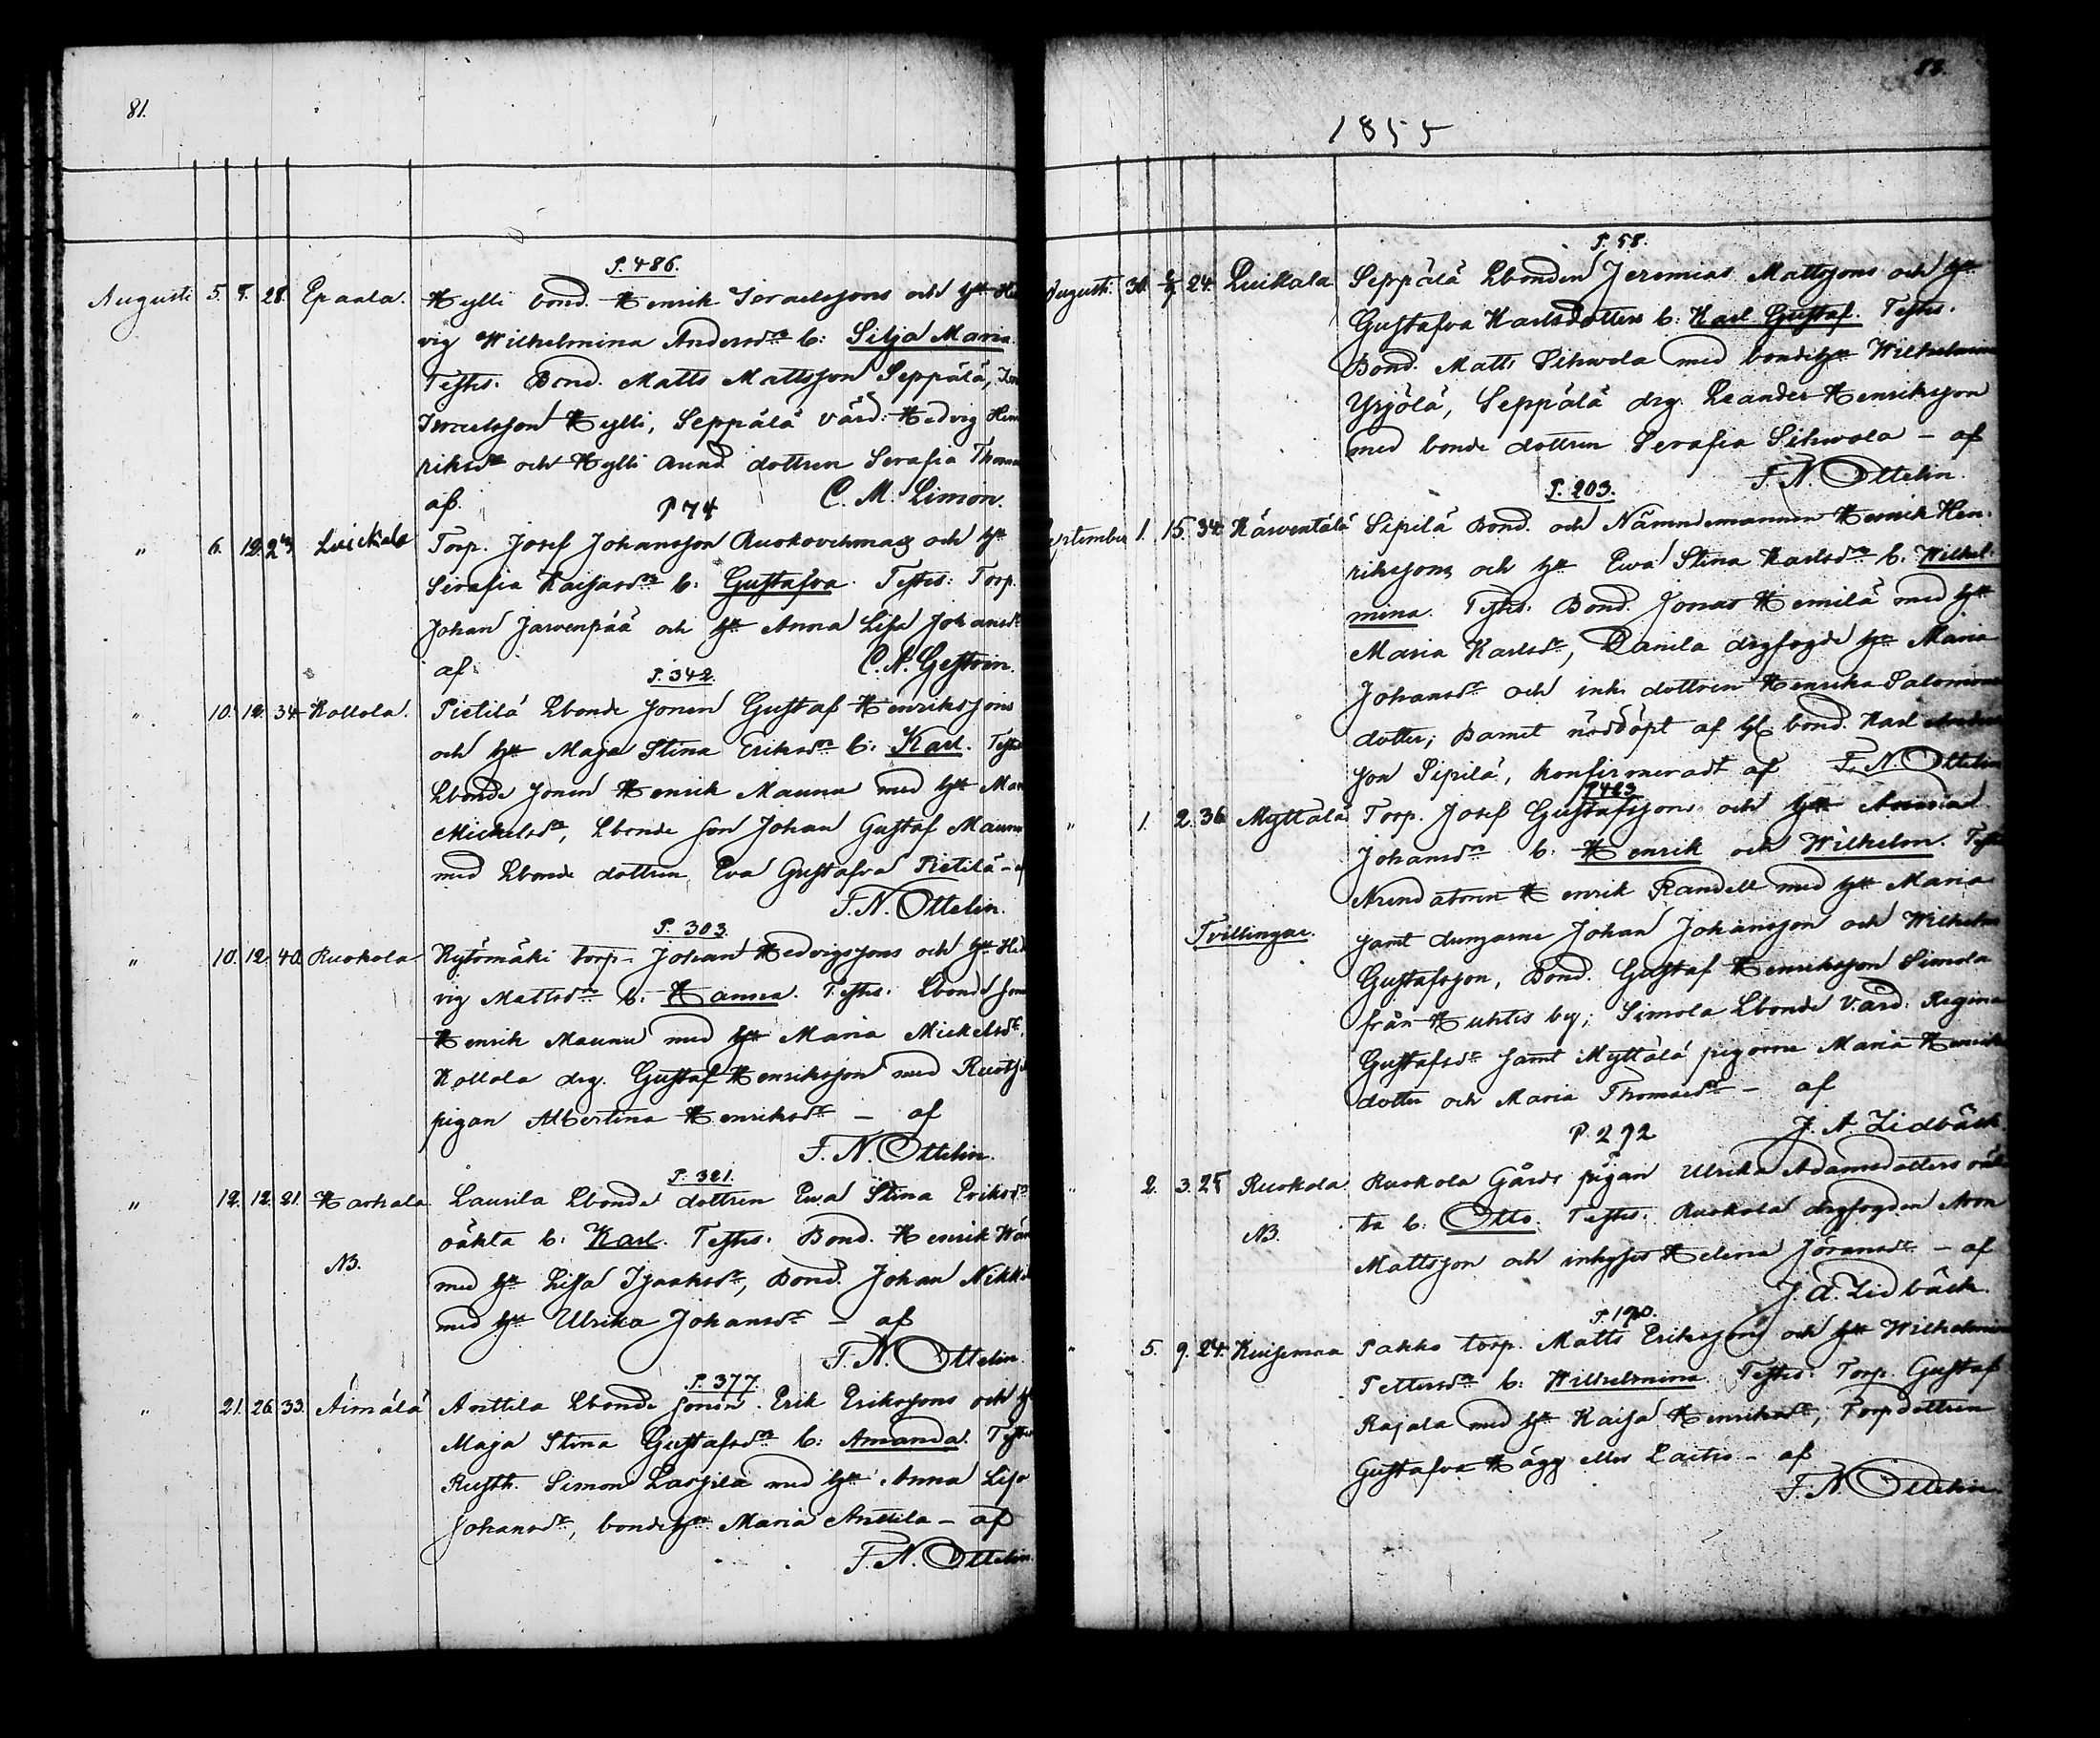 81.
P. 486.
Augusti 5. 8. 28. Epaala. Hylli bond. Henrik Israelssons och h:u Hed
vig Wilhelmina Andersd:rs b: Silja Maria.
Testes. Bond. Matts Mattsson Seppälä,
Israelsson Hylli, Seppälä värd: Hedvig Hen
riksd:r och Hylli dottren Serafia
af. C. M. Limón.
P 74
" 6. 12. Luickala Torp. Josef Johansson och h:u
Serafia Kaisasd:rs b: Gustafva. Testes: Torp.
Johan Jarvenpää och h:u Anna Lisa Johansd:r
af C. A. Gestrin.
P. 342.
" 10. 12. 34 Kollola. Pietilä Lbonde sonen Gustaf Henrikssons
och h:u Maja Stina Eriksd:rs b: Karl. Testes
Lbonde sonen Henrik Maunu med h:u Mar
Mickelsd:r, Lbonde son Johan Gustaf Maunu
med Lbonde dottren Eva Gustafva Pietilä – af
F. N. Ottelin.
P. 303.
" 10. 12. 40. Ruokola Kytömäki torp. Johan Hedvigssons och h:u Hed
vig Mattsd:rs b: Hanna. Testes: Lbonde sonen
Henrik Maunu med h:u Maria Mickelsd:r.
Kollola drg. Gustaf Henriksson med
pigan Albertina Henriksd:r – af
F. N. Ottelin.
P. 321.
" 12. 12. 21. Harhala Laurila Lbonde dottren Eva Stina Eriksd:rs
oäkta b: Karl. Testes: Bond. Henrik
NB. med h:u Lisa Isaaksd:r, Bond. Johan Nikki
med h:u Ulrika Johansd:r – af
F. N. Ottelin.
P. 377.
" 21. 26. 33. Äimälä Anttila Lbonde sonen Erik Erikssons och h:u
Maja Stina Gustafsd:rs b: Amanda. Testes
Rusth. Simon Lassila med h:u Anna Lisa
Johansd:r, bondeh:n Maria Anttila – af
F. N. Ottelin.
1855
P. 58.
Augusti. 31. 24. Luikala Seppälä Lbonden Jeremias Mattssons och h:u
Gustafva Karlsdotters b: Karl Gustaf. Testes.
Bond. Matts Sihvola med bondeh:n Wilhelmina
Yrjölä, Seppälä drg. Leander Henriksson
med bonde dottren Serafia Sihvola – af
F. N. Ottelin.
P. 203.
September 1. 15. 34. Kärventälä Sipilä Bond. och Nämndemannen Henrik Hen-
rikssons och h:u Eva Stina Karlsd:rs b: Wilhel-
mina. Testes. Bond. Jonas Hemilä med h:u
Maria Karlsd:r, Danila drgfogde h:u Maria
Johansd:r och inh. dottren Henrika Salomons
dotter; Barnet nöddöpt af bond. Karl
son Sipilä, konfirmeradt af F. N. Ottelin
P 483
" 1. 2. 36 Myttälä Torp. Josef Gustafssons och h:u
Johansd:rs b: Henrik och Wilhelm. Testes
Arendatoren Henrik Randell med h:u Maria
Tvillingar. samt drngarne Johan Johansson och Wilhelm
Gustafsson, Bond. Gustaf Henriksson Simola
från Huhtis by; Simola Lbonde värd: Regina
Gustafsd:r samt Myttälä pigorne Maria Henriks
dotter och Maria Thomasd:r – af
J. A. Lidbäck.
P. 292
" 2. 3. 25 Ruokola. Ruokola Gårds pigan Ulrika Adamsdotters oäk
NB. ta b: Otto. Testes. Ruokola drgfogden Aron
Mattsson och inhyses Helena Jöransd:r – af
J. A. Lidbäck.
P. 190.
" 5. 9. 24. Kuisemaa Pakka torp. Matts Erikssons och h:u Wilhelmina
Pettersd:rs b: Wilhelmina. Testes: Torp. Gustaf
Rajala med h:u Kaisa Henriksd:r, Torpdottren
Gustafva Hägg eller Laitis – af
F. N. Ottelin.